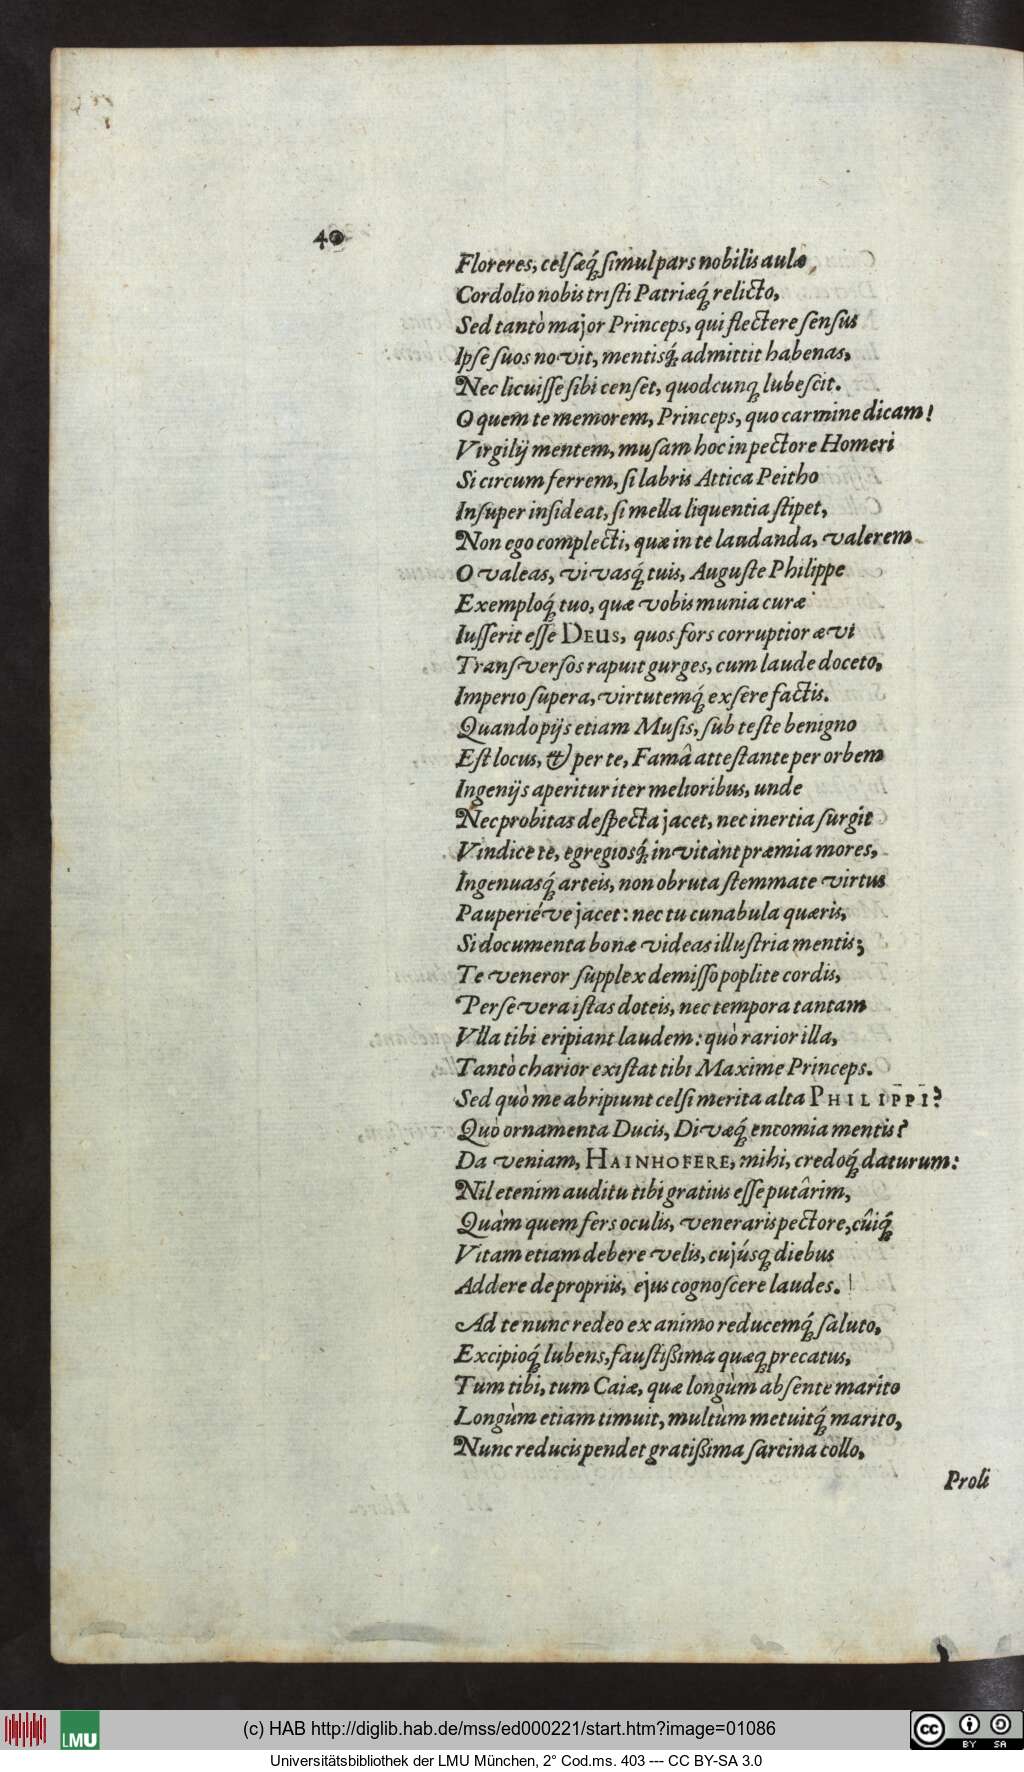 40
Floreres, celſæq́ ſimul pars nobilis aulæ,
Cordolio nobis triſti Patriæq́ relicto,
Sed tantò major Princeps, qui flectere ſenſus
Ipſe ſuos novit, mentisq́ admittit habenas,
Nec licuiſſe ſibi cenſet, quodcunq lubeſcit.
O quem te memorem, Princeps, quo carmine dicam!
Virgilij mentem, muſam hoc in pectore Homeri
Si circum ferrem, ſi labris Attica Peitho
Inſuper inſideat, ſi mella liquentia ſtipet,
Non ego complecti, quæ in te laudanda, valerem
O valeas, vivasq́ tuis, Auguſte Philippe
Exemploq́ tuo, quæ vobis munia curæ
Iuſſerit eſſe DEUS, quos fors corruptior ævi
Transverſos rapuit gurges, cum laude doceto,
Imperio ſupera, virtutemq́ exſere factis.
Quando pijs etiam Muſis, ſub teſte benigno
Eſt locus, & per te, Famâ atteſtante per orbem
Ingenijs aperitur iter melioribus, unde
Nec probitas deſpecta jacet, nec inertia ſurgit
Vindice te, egregiosq́ invitànt præmia mores,
Ingenuasq́ arteis, non obruta ſtemmate virtus
Pauperiéve jacet: nec tu cunabula quæris,
Si documenta bonæ videas illuſtria mentis;
Te veneror ſupplex demiſſo poplite cordis,
Perſevera iſtas doteis, nec tempora tantam
Vlla tibi eripiant laudem: quò rarior illa,
Tantò charior exiſtat tibi Maxime Princeps.
Sed quò me abripiunt celſi merita alta PHILIPPI?
Quò ornamenta Ducis, Divæq́ encomia mentis?
Da veniam, HAINHOFERE, mihi, credoq́ daturum:
Nil etenim auditu tibi gratius eſſe putârim,
Quàm quem fers oculis, veneraris pectore, cûiq́
Vitam etiam debere velis, cujúsq diebus
Addere de propriis, ejus cognoſcere laudes.
Ad te nunc redeo ex animo reducemq́ ſaluto,
Excipioq́ lubens, fauſtißima quæq precatus,
Tum tibi, tum Caiæ, quæ longùm abſente marito
Longùm etiam timuit, multùm metuitq́ marito,
Nunc reducis pendet gratißima ſarcina collo,
Proli
(c) HAB http://diglib.hab.de/mss/ed000221/start.htm?image=01086
LMU
CC BY SA
Universitätsbibliothek der LMU München, 2° Cod.ms. 403 --- CC BY-SA 3.0